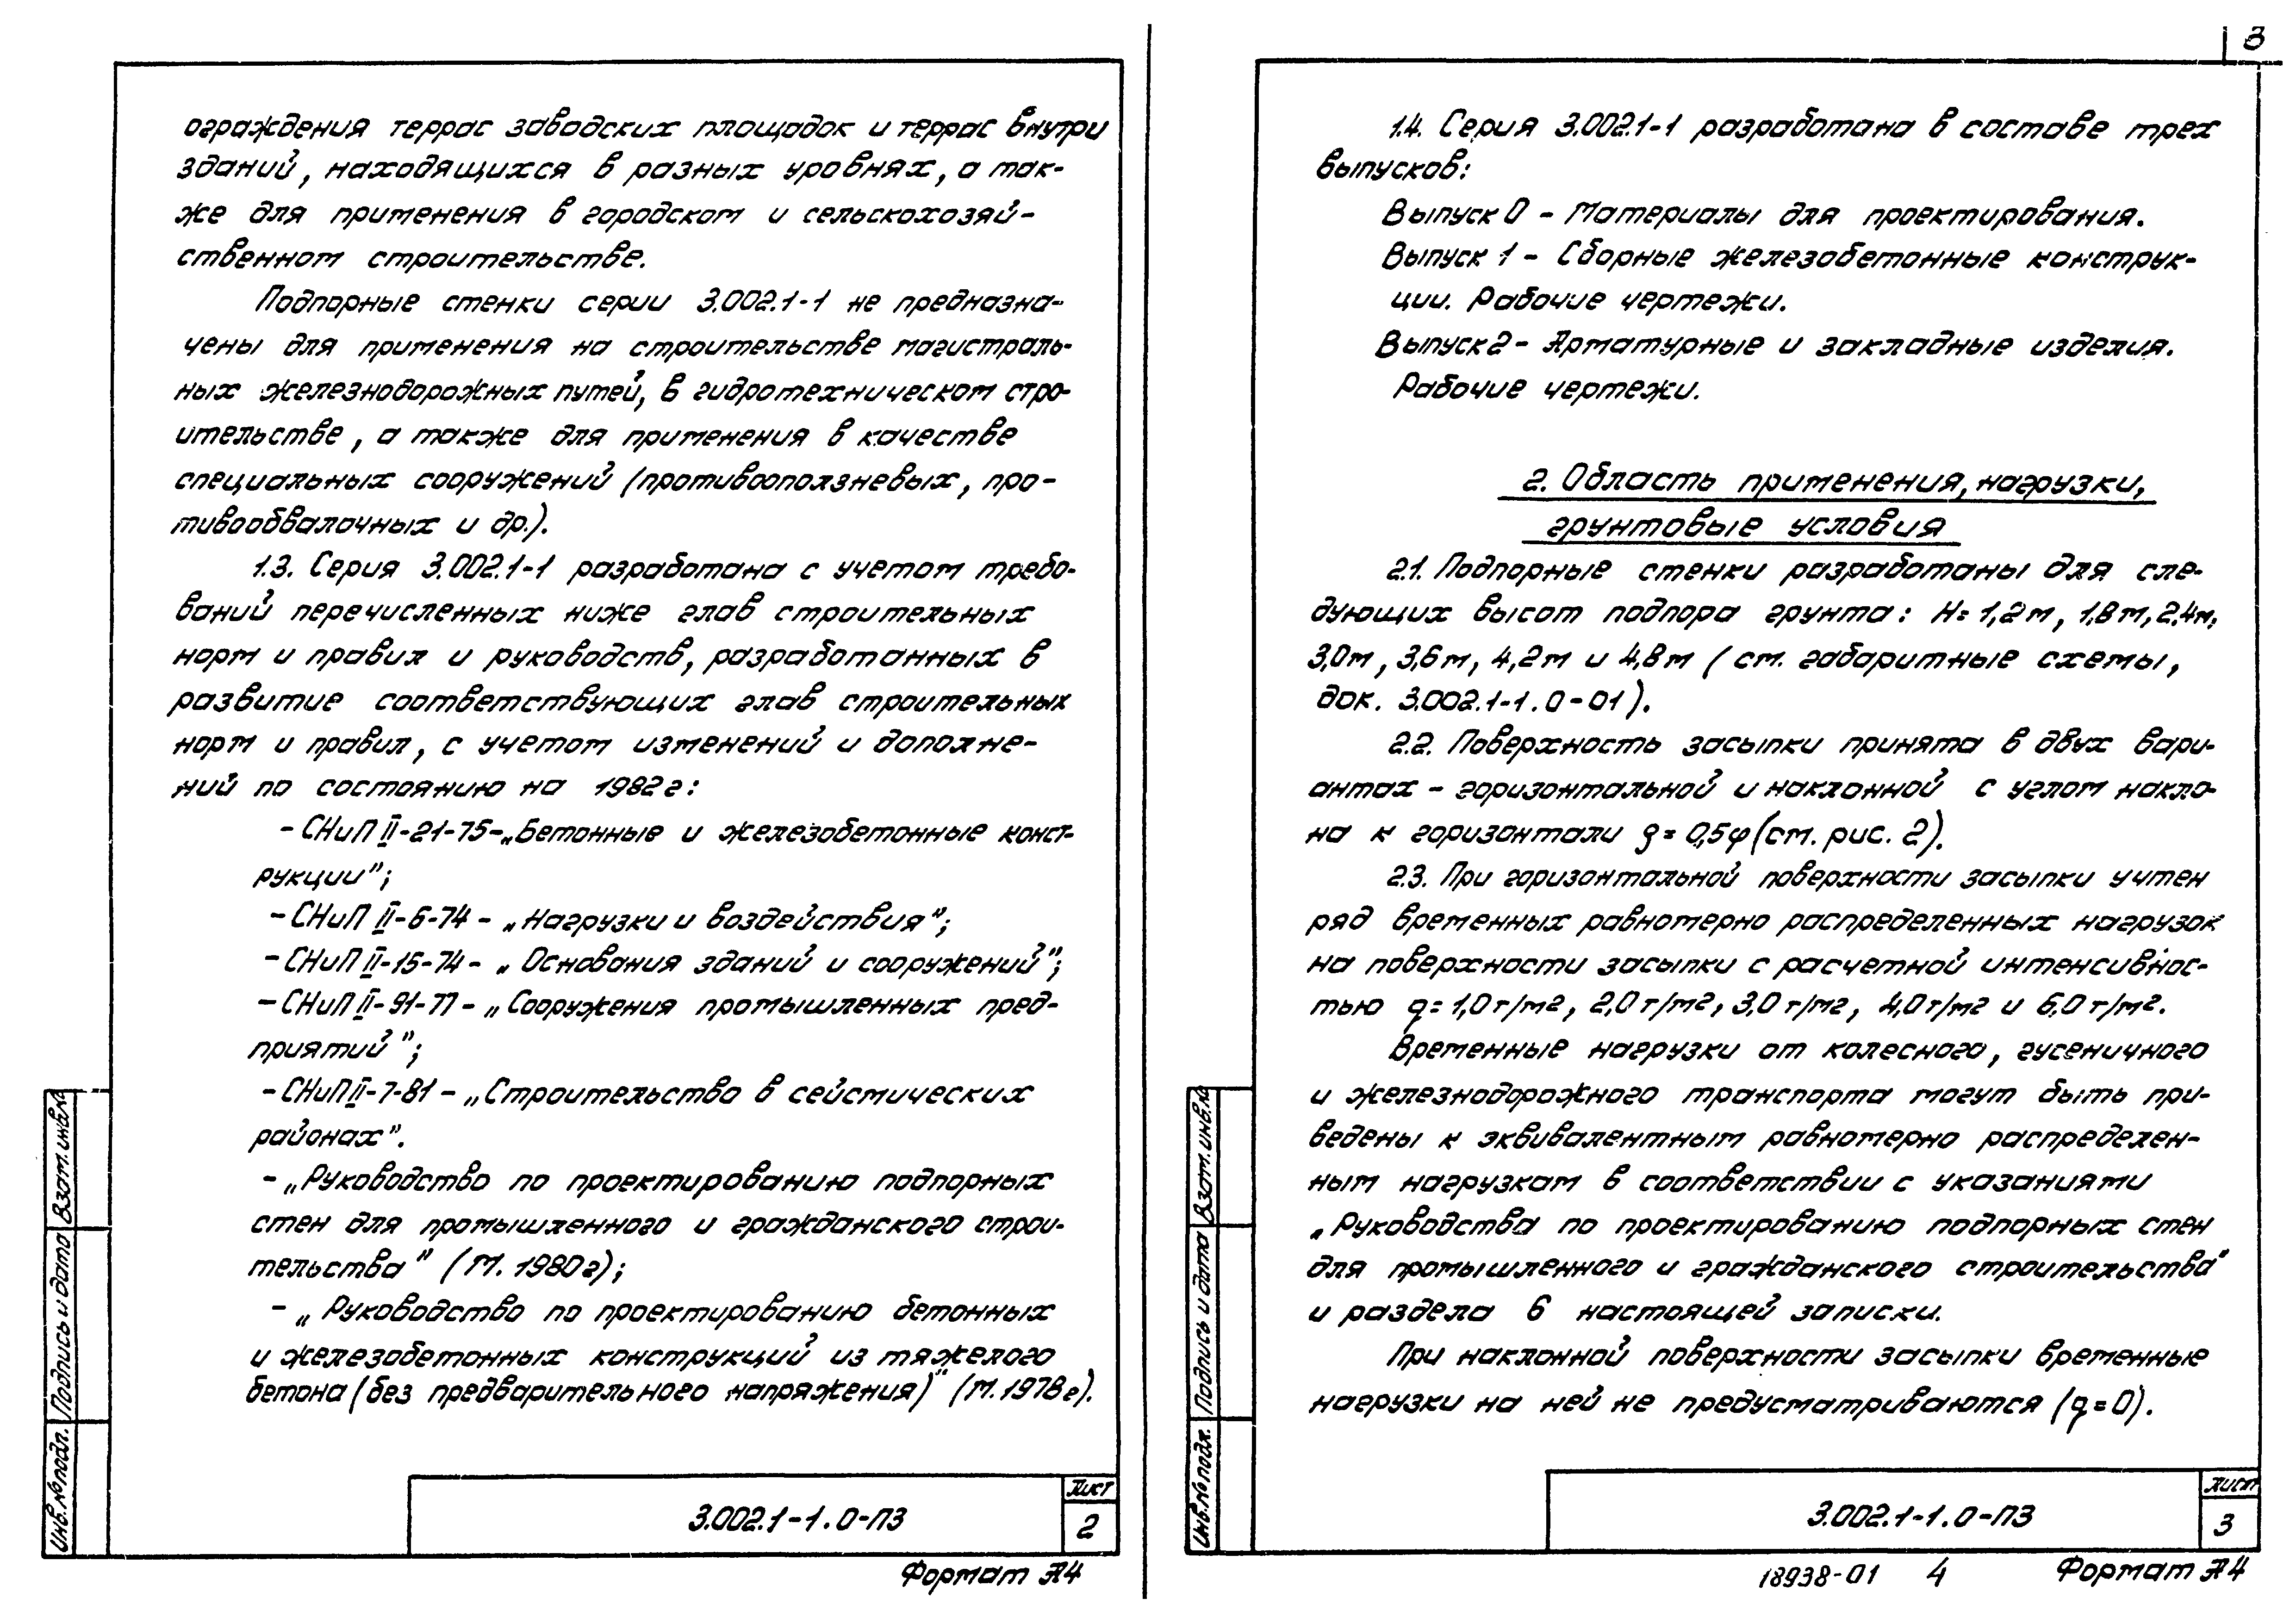 ограждения террас заводских площадок и террас внутри
зданий, находящихся в разных уровнях, а так-
же для применения в городском и сельскохозяй-
ственном строительстве.
Подпорные стенки серии 3.002.1-1 не предназна-
чены для применения на строительстве магистраль-
ных железнодорожных путей, в гидротехническом стро-
ительстве, а также для применения в качестве
специальных сооружений (противооползневых, про-
тивообвалочных и др.).
1.3. Серия 3.002.1-1 разработана с учетом требо-
ваний перечисленных ниже глав строительных
норм и правил и руководств, разработанных в
развитие соответствующих глав строительных
норм и правил, с учетом изменений и дополне-
ний по состоянию на 1982г:
- СНиП II-21-75-„Бетонные и железобетонные конст-
рукции";
- СНиП II-6-74 - „Нагрузки и воздействия";
- СНиП II-15-74 - „Основания зданий и сооружений";
- СНиП II-91-77 - „Сооружения промышленных пред-
приятий";
- СНиП II-7-81 - „Строительство в сейсмических
районах".
- „Руководство по проектированию подпорных
стен для промышленного и гражданского строи-
тельства" (М. 1980г);
- „Руководство по проектированию бетонных
и железобетонных конструкций из тяжелого
бетона (без предварительного напряжения)" (М. 1978г).
Взам. инв.№
Подпись и дата
Инв.№ подл.
3.002.1-1.0-ПЗ
Лист
2
Формат А4
3
1.4. Серия 3.002.1-1 разработана в составе трех
выпусков:
Выпуск 0 - Материалы для проектирования.
Выпуск 1 - Сборные железобетонные конструк-
ции. Рабочие чертежи.
Выпуск 2 - Арматурные и закладные изделия.
Рабочие чертежи.
2. Область применения, нагрузки,
грунтовые условия
2.1. Подпорные стенки разработаны для сле-
дующих высот подпора грунта: Н= 1,2м, 1,8м, 2,4м,
3,0м, 3,6м, 4,2м и 4,8м (см. габаритные схемы,
док. 3.002.1-1.0-01).
2.2. Поверхность засыпки принята в двух вари-
антах - горизонтальной и наклонной с углом накло-
на к горизонтали ρ= 0,5φ (см. рис. 2).
2.3. При горизонтальной поверхности засыпки учтен
ряд временных равномерно распределенных нагрузок
на поверхности засыпки с расчетной интенсивнос-
тью q= 1,0т/м2, 2,0т/м2, 3,0т/м2, 4,0т/м2 и 6,0т/м2.
Временные нагрузки от колесного, гусеничного
и железнодорожного транспорта могут быть при-
ведены к эквивалентным равномерно распределен-
ным нагрузкам в соответствии с указаниями
„Руководства по проектированию подпорных стен
для промышленного и гражданского строительства"
и раздела 6 настоящей записки.
При наклонной поверхности засыпки временные
нагрузки на ней не предусматриваются (q=0).
Взам. инв.№
Подпись и дата
Инв.№ подл.
3.002.1-1.0-ПЗ
Лист
3
18938-01 4 Формат А4